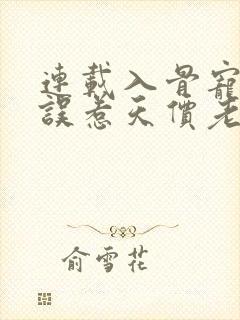 連載入骨寵
誤惹天價老
俞雪花